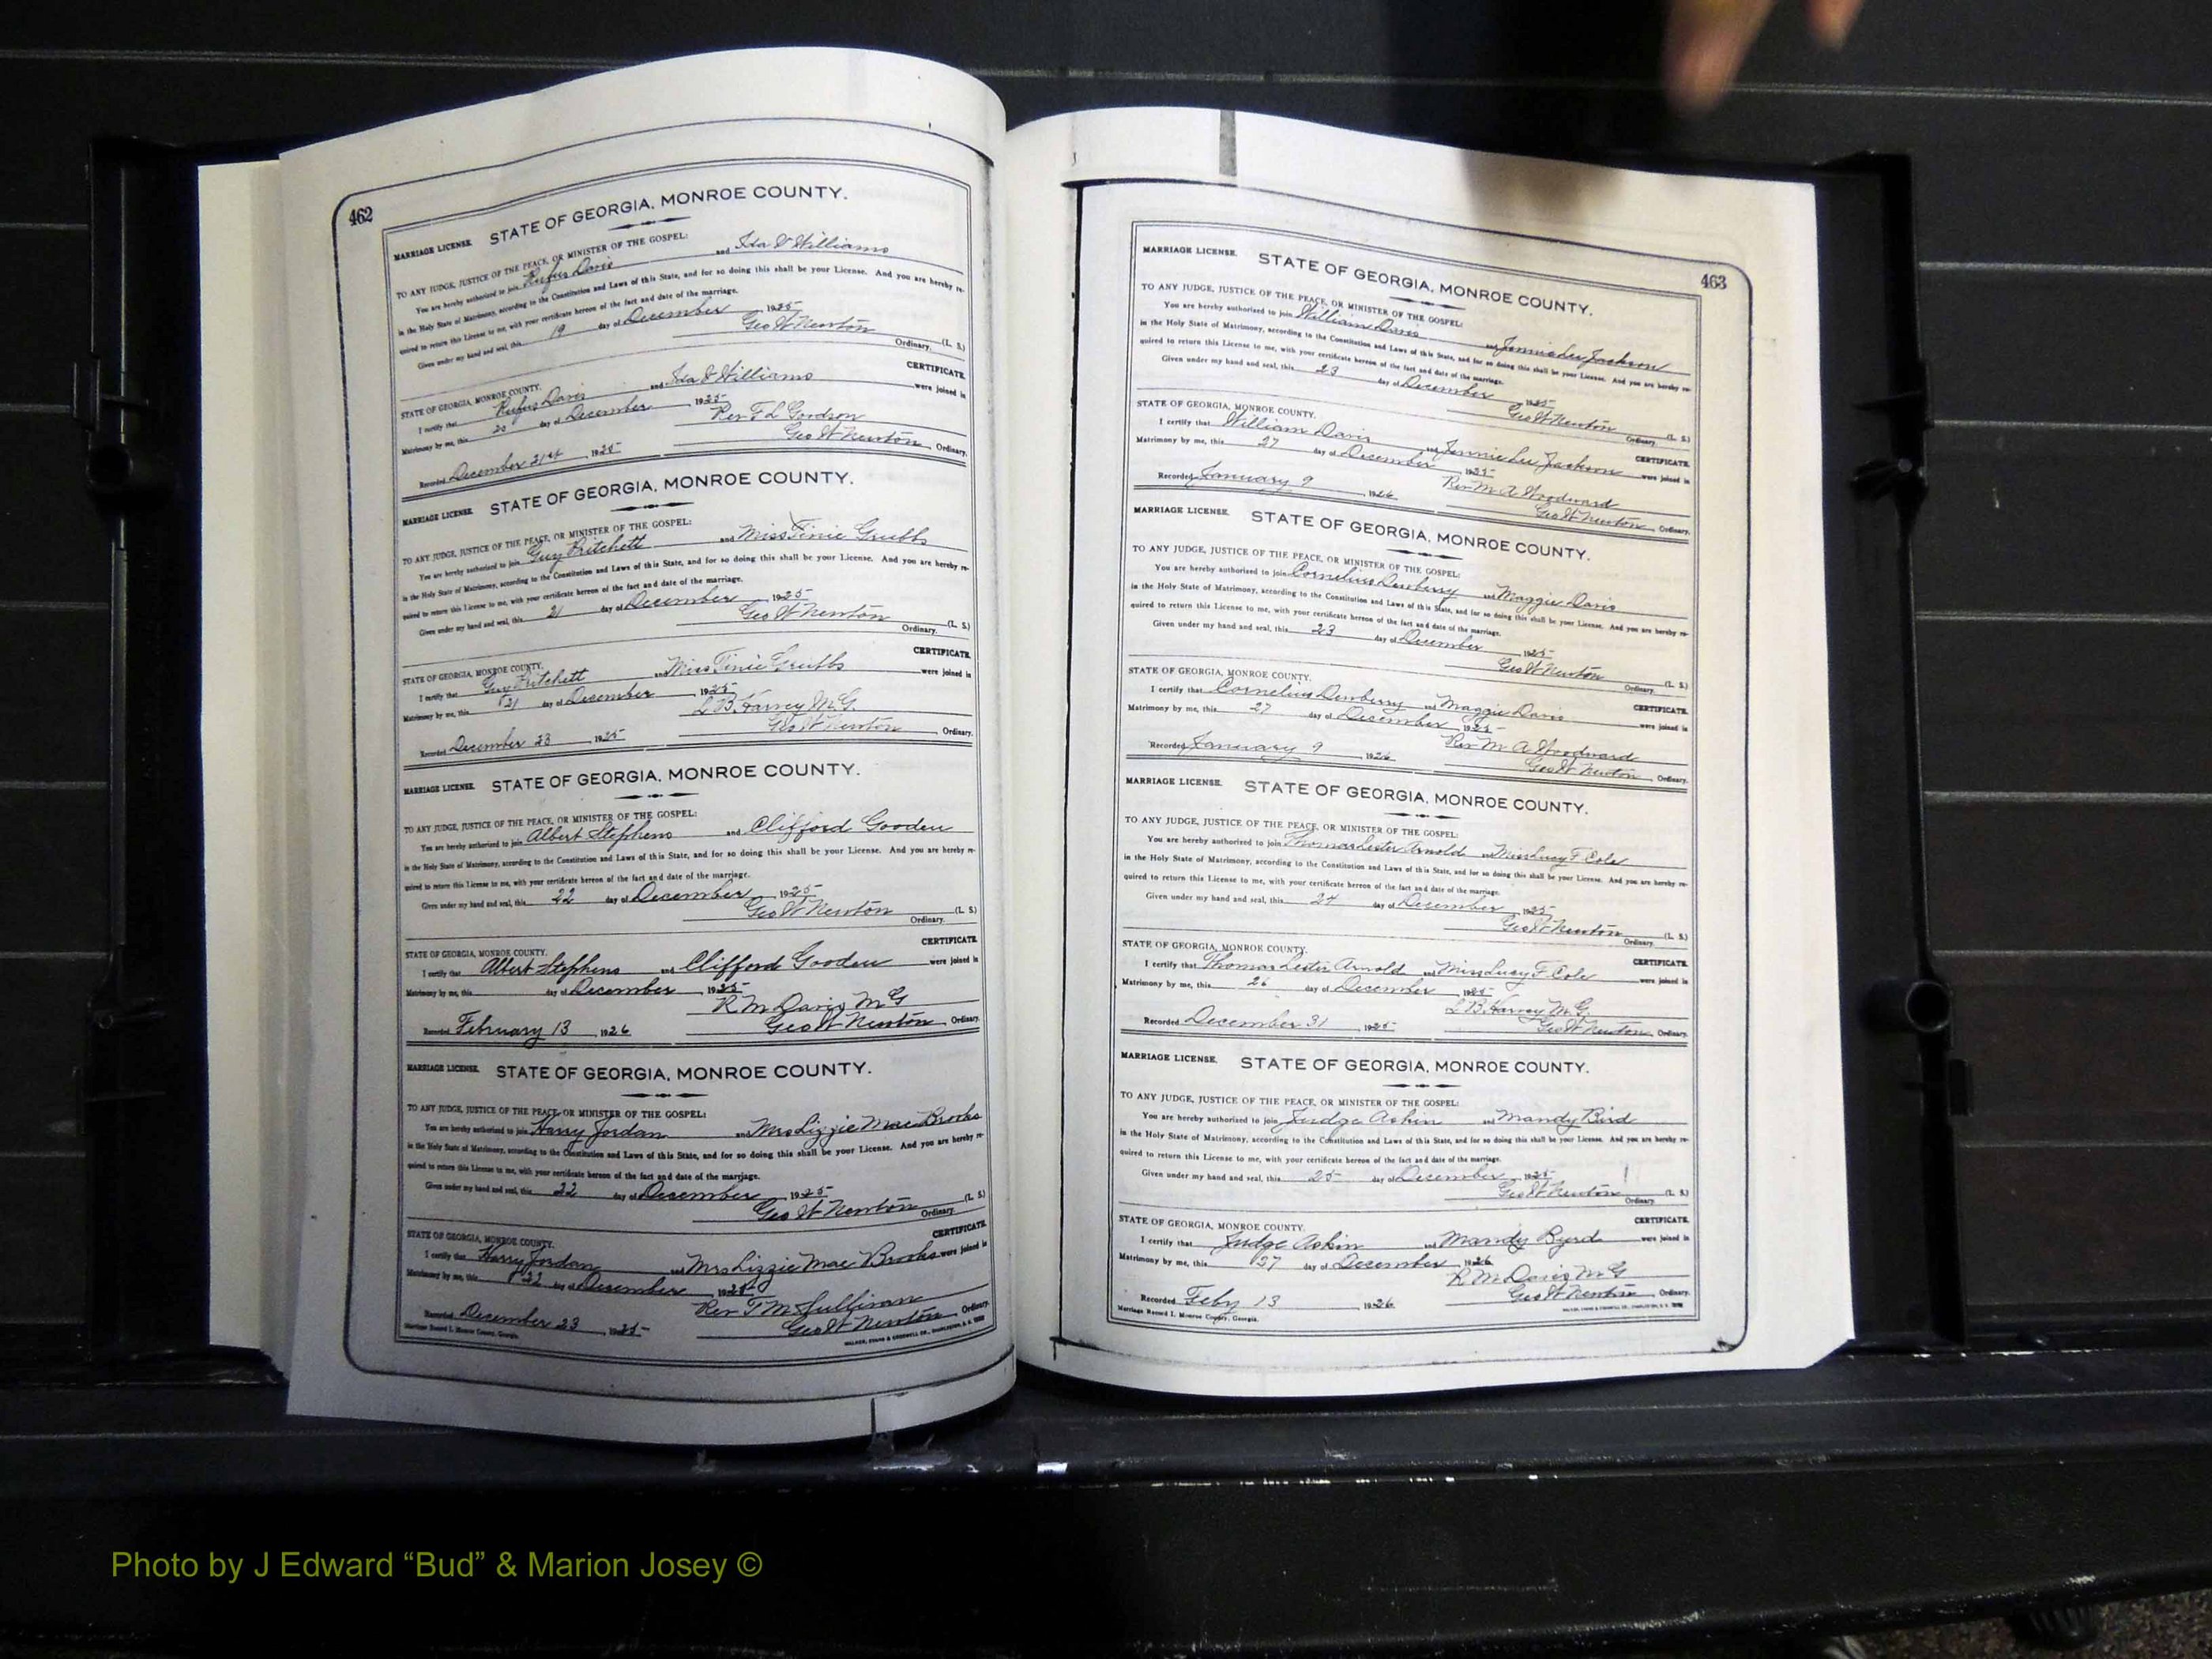 462
MARRIAGE LICENSE. STATE OF GEORGIA, MONROE COUNTY.
TO ANY JUDGE, JUSTICE OF THE PEACE, OR MINISTER OF THE GOSPEL:
You are hereby authorized to join Rufus Davis and Ida V Williams
in the Holy State of Matrimony, according to the Constitution and Laws of this State, and for so doing this shall be your License. And you are hereby re-
quired to return this License to me, with your certificate hereon of the fact and date of the marriage.
Given under my hand and seal, this 19 day of December 1925
Geo W Newton (L. S.)
Ordinary.
STATE OF GEORGIA, MONROE COUNTY. CERTIFICATE.
I certify that Rufus Davis and Ida V Williams were joined in
Matrimony by me, this 20 day of December 1925
Rev F L Goodson
Recorded December 21st 1925 Geo W Newton Ordinary.
MARRIAGE LICENSE. STATE OF GEORGIA, MONROE COUNTY.
TO ANY JUDGE, JUSTICE OF THE PEACE, OR MINISTER OF THE GOSPEL:
You are hereby authorized to join Guy Pritchett and Miss Tinie Grubbs
in the Holy State of Matrimony, according to the Constitution and Laws of this State, and for so doing this shall be your License. And you are hereby re-
quired to return this License to me, with your certificate hereon of the fact and date of the marriage.
Given under my hand and seal, this 21 day of December 1925
Geo W Newton (L. S.)
Ordinary.
STATE OF GEORGIA, MONROE COUNTY. CERTIFICATE.
I certify that Guy Pritchett and Miss Tinie Grubbs were joined in
Matrimony by me, this 21 day of December 1925
L B Harvey M.G.
Recorded December 23 1925 Geo W Newton Ordinary.
MARRIAGE LICENSE. STATE OF GEORGIA, MONROE COUNTY.
TO ANY JUDGE, JUSTICE OF THE PEACE, OR MINISTER OF THE GOSPEL:
You are hereby authorized to join Albert Stephens and Clifford Gooden
in the Holy State of Matrimony, according to the Constitution and Laws of this State, and for so doing this shall be your License. And you are hereby re-
quired to return this License to me, with your certificate hereon of the fact and date of the marriage.
Given under my hand and seal, this 22 day of December 1925
Geo W Newton (L. S.)
Ordinary.
STATE OF GEORGIA, MONROE COUNTY. CERTIFICATE.
I certify that Albert Stephens and Clifford Gooden were joined in
Matrimony by me, this day of December 1925
R M Davis M G
Recorded February 13 1926 Geo W Newton Ordinary.
MARRIAGE LICENSE. STATE OF GEORGIA, MONROE COUNTY.
TO ANY JUDGE, JUSTICE OF THE PEACE, OR MINISTER OF THE GOSPEL:
You are hereby authorized to join Harry Jordan and Mrs Lizzie Mae Brooks
in the Holy State of Matrimony, according to the Constitution and Laws of this State, and for so doing this shall be your License. And you are hereby re-
quired to return this License to me, with your certificate hereon of the fact and date of the marriage.
Given under my hand and seal, this 22 day of December 1925
Geo W Newton (L. S.)
Ordinary.
STATE OF GEORGIA, MONROE COUNTY. CERTIFICATE.
I certify that Harry Jordan and Mrs Lizzie Mae Brooks were joined in
Matrimony by me, this 22 day of December 1925
Rev T M Sullivan
Recorded December 23 1925 Geo W Newton Ordinary.
Marriage Record I, Monroe County, Georgia.
463
MARRIAGE LICENSE. STATE OF GEORGIA, MONROE COUNTY.
TO ANY JUDGE, JUSTICE OF THE PEACE, OR MINISTER OF THE GOSPEL:
You are hereby authorized to join William Davis and Jennie Lee Jackson
in the Holy State of Matrimony, according to the Constitution and Laws of this State, and for so doing this shall be your License. And you are hereby re-
quired to return this License to me, with your certificate hereon of the fact and date of the marriage.
Given under my hand and seal, this 23 day of December 1925
Geo W Newton (L. S.)
Ordinary.
STATE OF GEORGIA, MONROE COUNTY. CERTIFICATE.
I certify that William Davis and Jennie Lee Jackson were joined in
Matrimony by me, this 27 day of December 1925
Rev M A Woodward
Recorded January 9 1926 Geo W Newton Ordinary.
MARRIAGE LICENSE. STATE OF GEORGIA, MONROE COUNTY.
TO ANY JUDGE, JUSTICE OF THE PEACE, OR MINISTER OF THE GOSPEL:
You are hereby authorized to join Cornelius Dewberry and Maggie Davis
in the Holy State of Matrimony, according to the Constitution and Laws of this State, and for so doing this shall be your License. And you are hereby re-
quired to return this License to me, with your certificate hereon of the fact and date of the marriage.
Given under my hand and seal, this 23 day of December 1925
Geo W Newton (L. S.)
Ordinary.
STATE OF GEORGIA, MONROE COUNTY. CERTIFICATE.
I certify that Cornelius Dewberry and Maggie Davis were joined in
Matrimony by me, this 27 day of December 1925
Rev M A Woodward
Recorded January 9 1926 Geo W Newton Ordinary.
MARRIAGE LICENSE. STATE OF GEORGIA, MONROE COUNTY.
TO ANY JUDGE, JUSTICE OF THE PEACE, OR MINISTER OF THE GOSPEL:
You are hereby authorized to join Thomas Lester Arnold and Miss Lucy F Cole
in the Holy State of Matrimony, according to the Constitution and Laws of this State, and for so doing this shall be your License. And you are hereby re-
quired to return this License to me, with your certificate hereon of the fact and date of the marriage.
Given under my hand and seal, this 24 day of December 1925
Geo W Newton (L. S.)
Ordinary.
STATE OF GEORGIA, MONROE COUNTY. CERTIFICATE.
I certify that Thomas Lester Arnold and Miss Lucy F Cole were joined in
Matrimony by me, this 26 day of December 1925
L B Harvey M.G.
Recorded December 31 1925 Geo W Newton Ordinary.
MARRIAGE LICENSE. STATE OF GEORGIA, MONROE COUNTY.
TO ANY JUDGE, JUSTICE OF THE PEACE, OR MINISTER OF THE GOSPEL:
You are hereby authorized to join Judge Askin and Mandy Bird
in the Holy State of Matrimony, according to the Constitution and Laws of this State, and for so doing this shall be your License. And you are hereby re-
quired to return this License to me, with your certificate hereon of the fact and date of the marriage.
Given under my hand and seal, this 25 day of December 1925
Geo W Newton (L. S.)
Ordinary.
STATE OF GEORGIA, MONROE COUNTY. CERTIFICATE.
I certify that Judge Askin and Mandy Byrd were joined in
Matrimony by me, this 27 day of December 1926
R M Davis M G
Recorded Feby 13 1926 Geo W Newton Ordinary.
Marriage Record I, Monroe County, Georgia.
Photo by J Edward “Bud” & Marion Josey ©